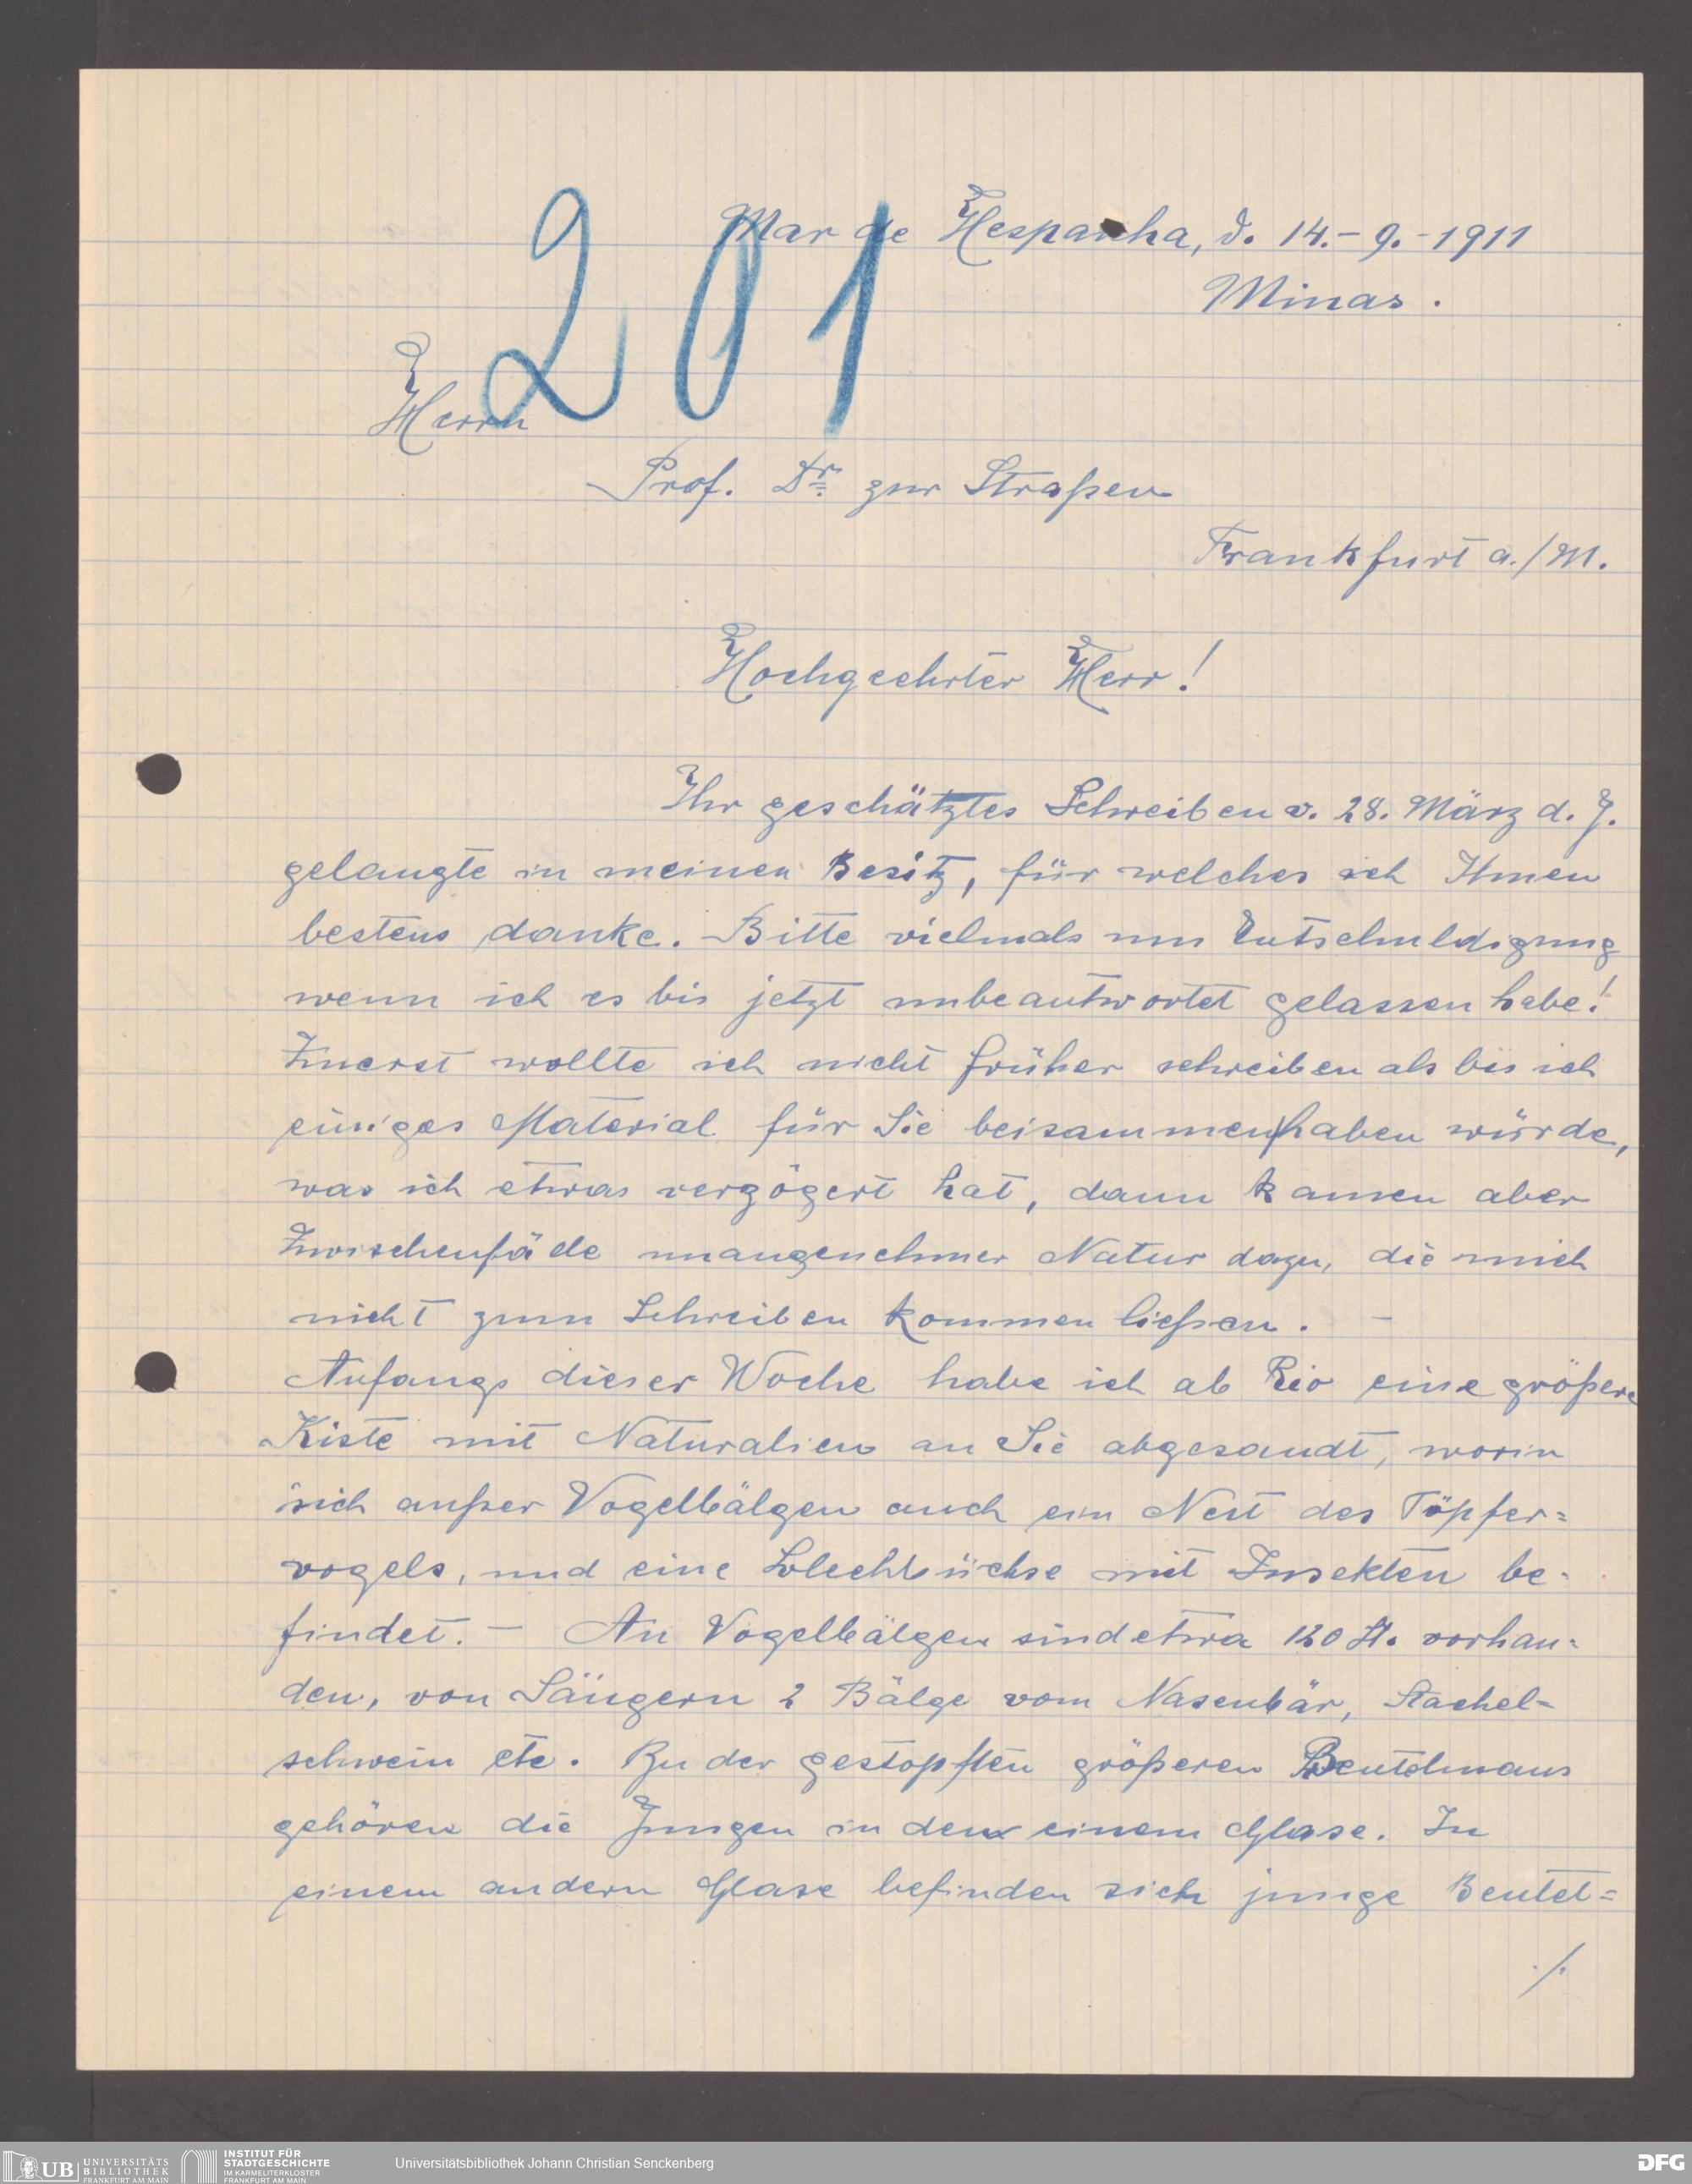 201
Mar de Hespanha, d. 14.-9.-1911
Minas.
Herrn
Prof. Dr. zur Straßen
Frankfurt a./M.
Hochgeehrter Herr!
Ihr geschätztes Schreiben v. 28. März d. J.
gelangte in meinen Besitz, für welches ich Ihnen
bestens danke. Bitte vielmals um Entschuldigung
wenn ich es bis jetzt unbeantwortet gelassen habe!
Zuerst wollte ich nicht früher schreiben als bis ich
einiges Material für Sie beisammen haben würde,
was sich etwas verzögert hat, dann kamen aber
Zwischenfäde unangenehmer Natur dazu, die mich
nicht zum Schreiben kommen ließen. -
Anfangs dieser Woche habe ich ab Rio eine größere
Kiste mit Naturalien an Sie abgesandt, worin
sich außer Vogelbälgen auch ein Nest des Töpfer=
vogels, und eine Blechbüchse mit Insekten be=
findet. - An Vogelbälgen sind etwa 120 St. vorhan=
den, von Säugern 2 Bälge vom Nasenbär, Stachel-
schwein etc. Zu der gestopften größeren Beutelmaus
gehören die Jungen in dem einem Glase. In
einem andern Glase befinden sich junge Beutel=
./.
UB UNIVERSITÄTS
BIBLIOTHEK
FRANKFURT AM MAIN
INSTITUT FÜR
STADTGESCHICHTE
IM KARMELITERKLOSTER
FRANKFURT AM MAIN
Universitätsbibliothek Johann Christian Senckenberg
DFG